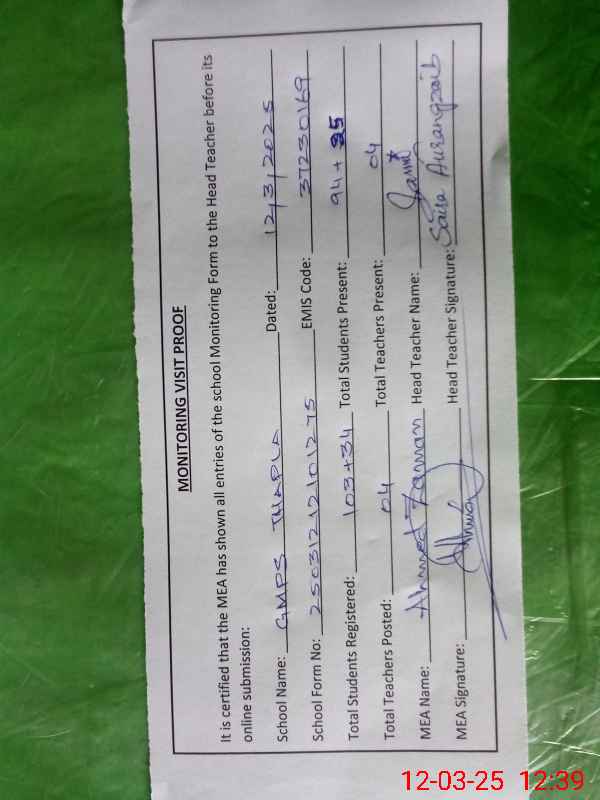 MONITORING VISIT PROOF
It is certified that the MEA has shown all entries of the school Monitoring Form to the Head Teacher before its
online submission:
School Name: GMPS THAPLA Dated: 12/3/2025
School Form No: 25031212101275 EMIS Code: 37230169
Total Students Registered: 103+34 Total Students Present: 94+ 25
Total Teachers Posted: 04 Total Teachers Present: 04
MEA Name: Ahmed Zaman Head Teacher Name:
MEA Signature: Head Teacher Signature: Saira Aurangzaib
12-03-25 12:39